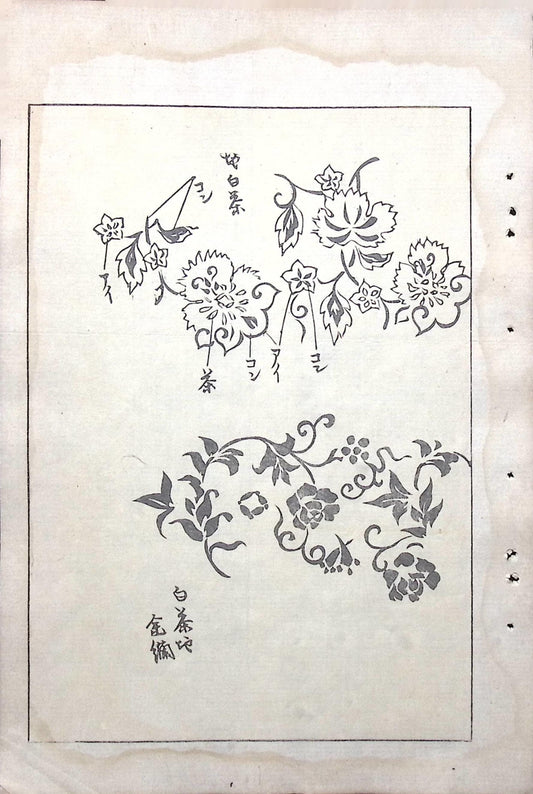 地白茶
コン
アイ
茶
コン
アイ
コン
白茶地
金襴